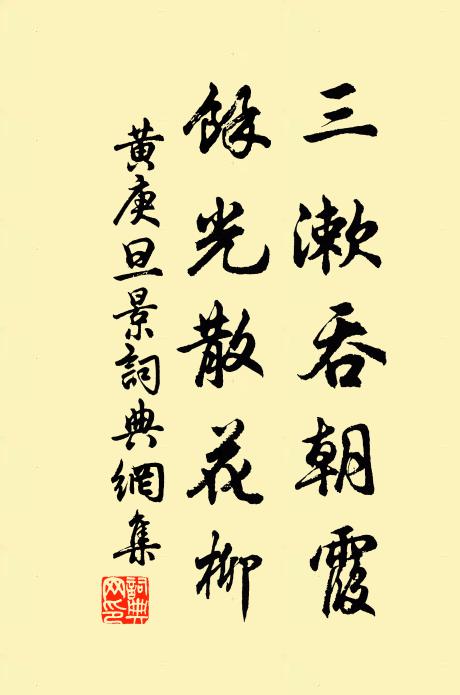 三漱吞朝霞
餘光散花柳
黃庚旦景詞典網集
詞典網印